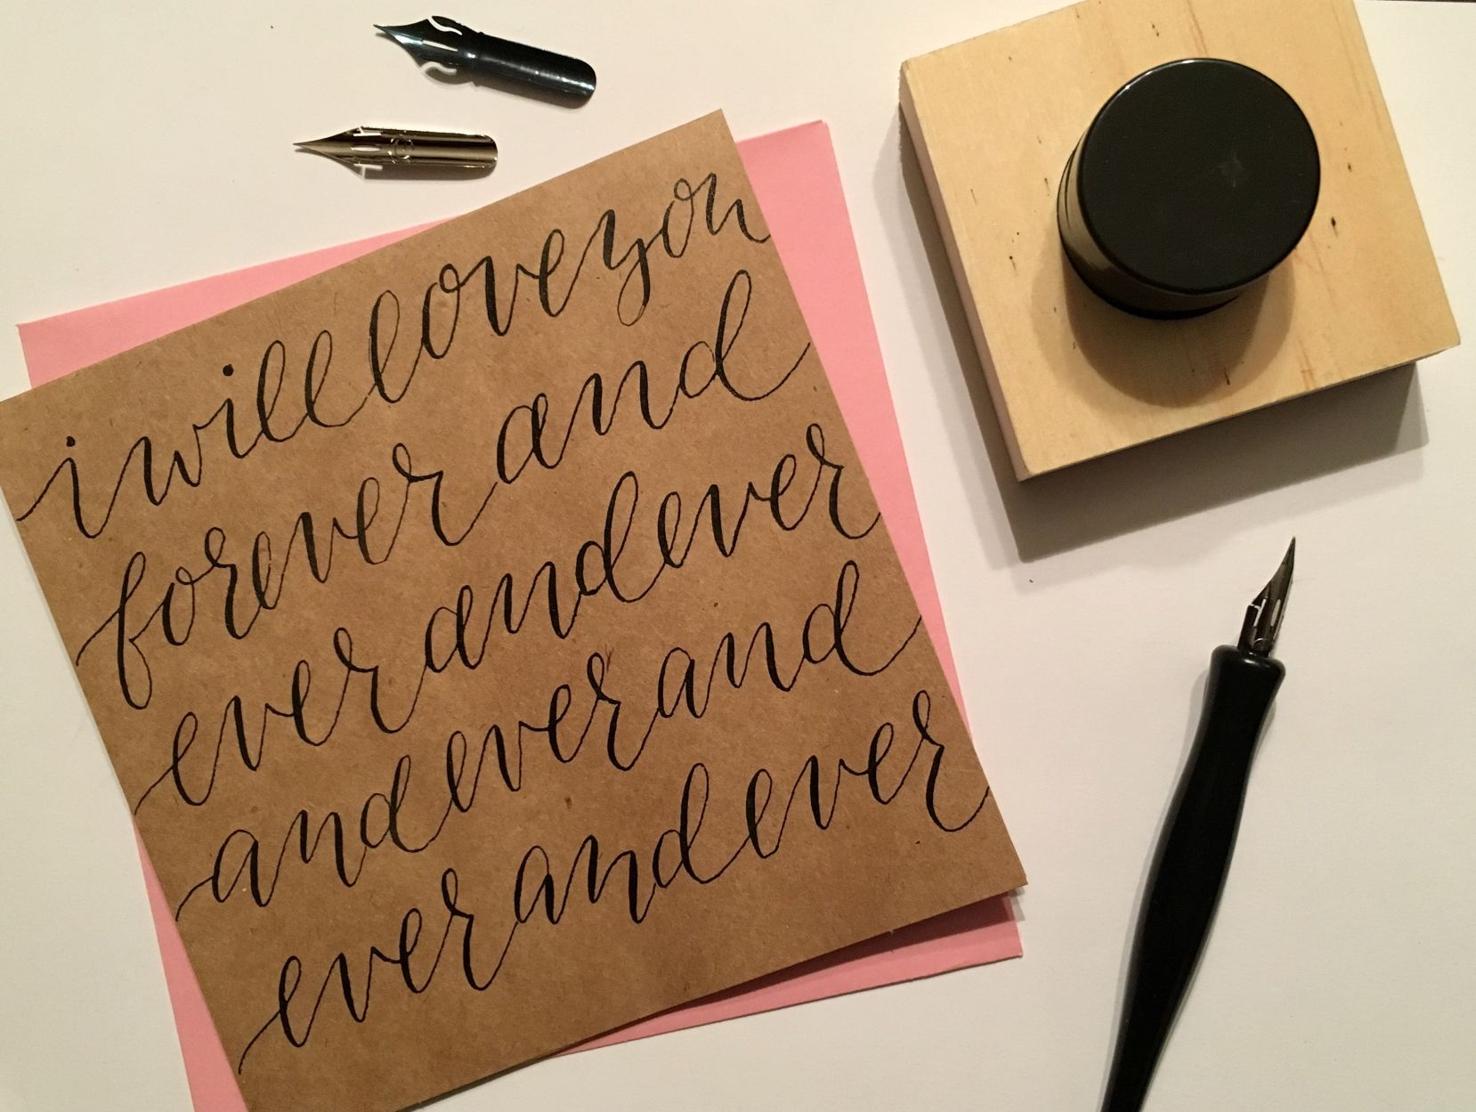 i will love you
forever and
ever and ever
and ever and
ever and ever